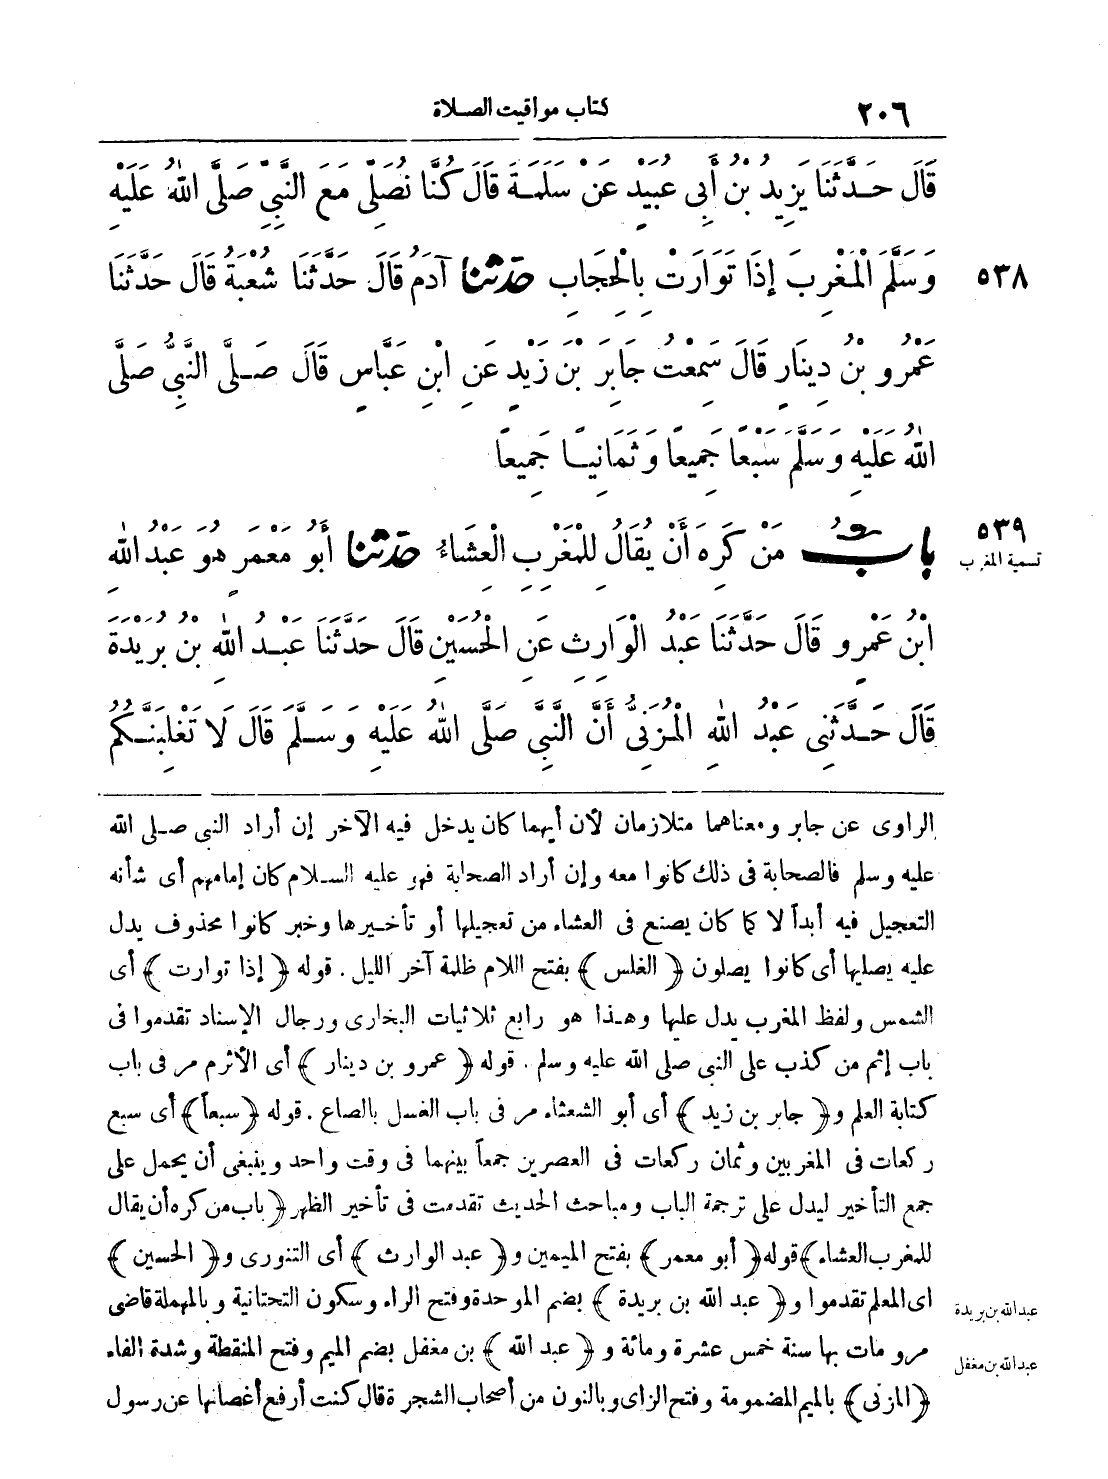 ٢٠٦ كتاب مواقيت الصلاة
قَالَ حَدَّثَنَا يَزِيدُ بْنُ أَبِى عُبَيْدٍ عَنْ سَلَمَةَ قَالَ كُنَّا نُصَلِّى مَعَ النَّبِيِّ صَلَّى اللهُ عَلَيْهِ
٥٣٨ وَسَلَّمَ الْمَغْرِبَ إِذَا تَوَارَتْ بِالْحِجَابِ حَدَّثَنَا آدَمُ قَالَ حَدَّثَنَا شُعْبَةُ قَالَ حَدَّثَنَا
عَمْرُو بْنُ دِينَارٍ قَالَ سَمِعْتُ جَابِرَ بْنَ زَيْدٍ عَنِ ابْنِ عَبَّاسٍ قَالَ صَلَّى النَّبِيُّ صَلَّى
اللهُ عَلَيْهِ وَسَلَّمَ سَبْعًا جَمِيعًا وَثَمَانِيًا جَمِيعًا
٥٣٩ تسمية المغرب بابُ مَنْ كَرِهَ أَنْ يُقَالَ لِلْمَغْرِبِ الْعِشَاءُ حَدَّثَنَا أَبُو مَعْمَرٍ هُوَ عَبْدُ اللهِ
ابْنُ عَمْرٍو قَالَ حَدَّثَنَا عَبْدُ الْوَارِثِ عَنِ الْحُسَيْنِ قَالَ حَدَّثَنَا عَبْدُ اللهِ بْنُ بُرَيْدَةَ
قَالَ حَدَّثَنِى عَبْدُ اللهِ الْمُزَنِىُّ أَنَّ النَّبِيَّ صَلَّى اللهُ عَلَيْهِ وَسَلَّمَ قَالَ لَا تَغْلِبَنَّكُمُ
الراوى عن جابر ومعناهما متلازمان لأن أيهما كان يدخل فيه الآخر إن أراد النبى صلى الله
عليه وسلم فالصحابة فى ذلك كانوا معه وإن أراد الصحابة فهو عليه السلام كان إمامهم أى شأنه
التعجيل فيه أبداً لا كما كان يصنع فى العشاء من تعجيلها أو تأخيرها وخبر كانوا محذوف يدل
عليه يصليها أى كانوا يصلون ﴿الغلس﴾ بفتح اللام ظلمة آخر الليل. قوله ﴿إذا توارت﴾ أى
الشمس ولفظ المغرب يدل عليها وهذا هو رابع ثلاثيات البخارى ورجال الإسناد تقدموا فى
باب إثم من كذب على النبى صلى الله عليه وسلم. قوله ﴿عمرو بن دينار﴾ أى الأثرم مر فى باب
كتابة العلم و﴿جابر بن زيد﴾ أى أبو الشعثاء مر فى باب الغسل بالصاع. قوله ﴿سبعاً﴾ أى سبع
ركعات فى المغربين وثمان ركعات فى العصرين جمعاً بينهما فى وقت واحد وينبغى أن يحمل على
جمع التأخير ليدل على ترجمة الباب ومباحث الحديث تقدمت فى تأخير الظهر ﴿باب من كره أن يقال
للمغرب العشاء﴾ قوله ﴿أبو معمر﴾ بفتح الميمين و﴿عبد الوارث﴾ أى التنورى و﴿الحسين﴾
اى المعلم تقدموا و﴿عبد الله بن بريدة﴾ بضم الموحدة وفتح الراء وسكون التحتانية وبالمهملة قاضى عبد الله بن بريدة
مرو مات بها سنة خمس عشرة ومائة و﴿عبد الله﴾ بن مغفل بضم الميم وفتح المنقطة وشدة الفاء عبد الله بن مغفل
﴿المزنى﴾ بالميم المضمومة وفتح الزاى وبالنون من أصحاب الشجرة قال كنت أرفع أغصانها عن رسول